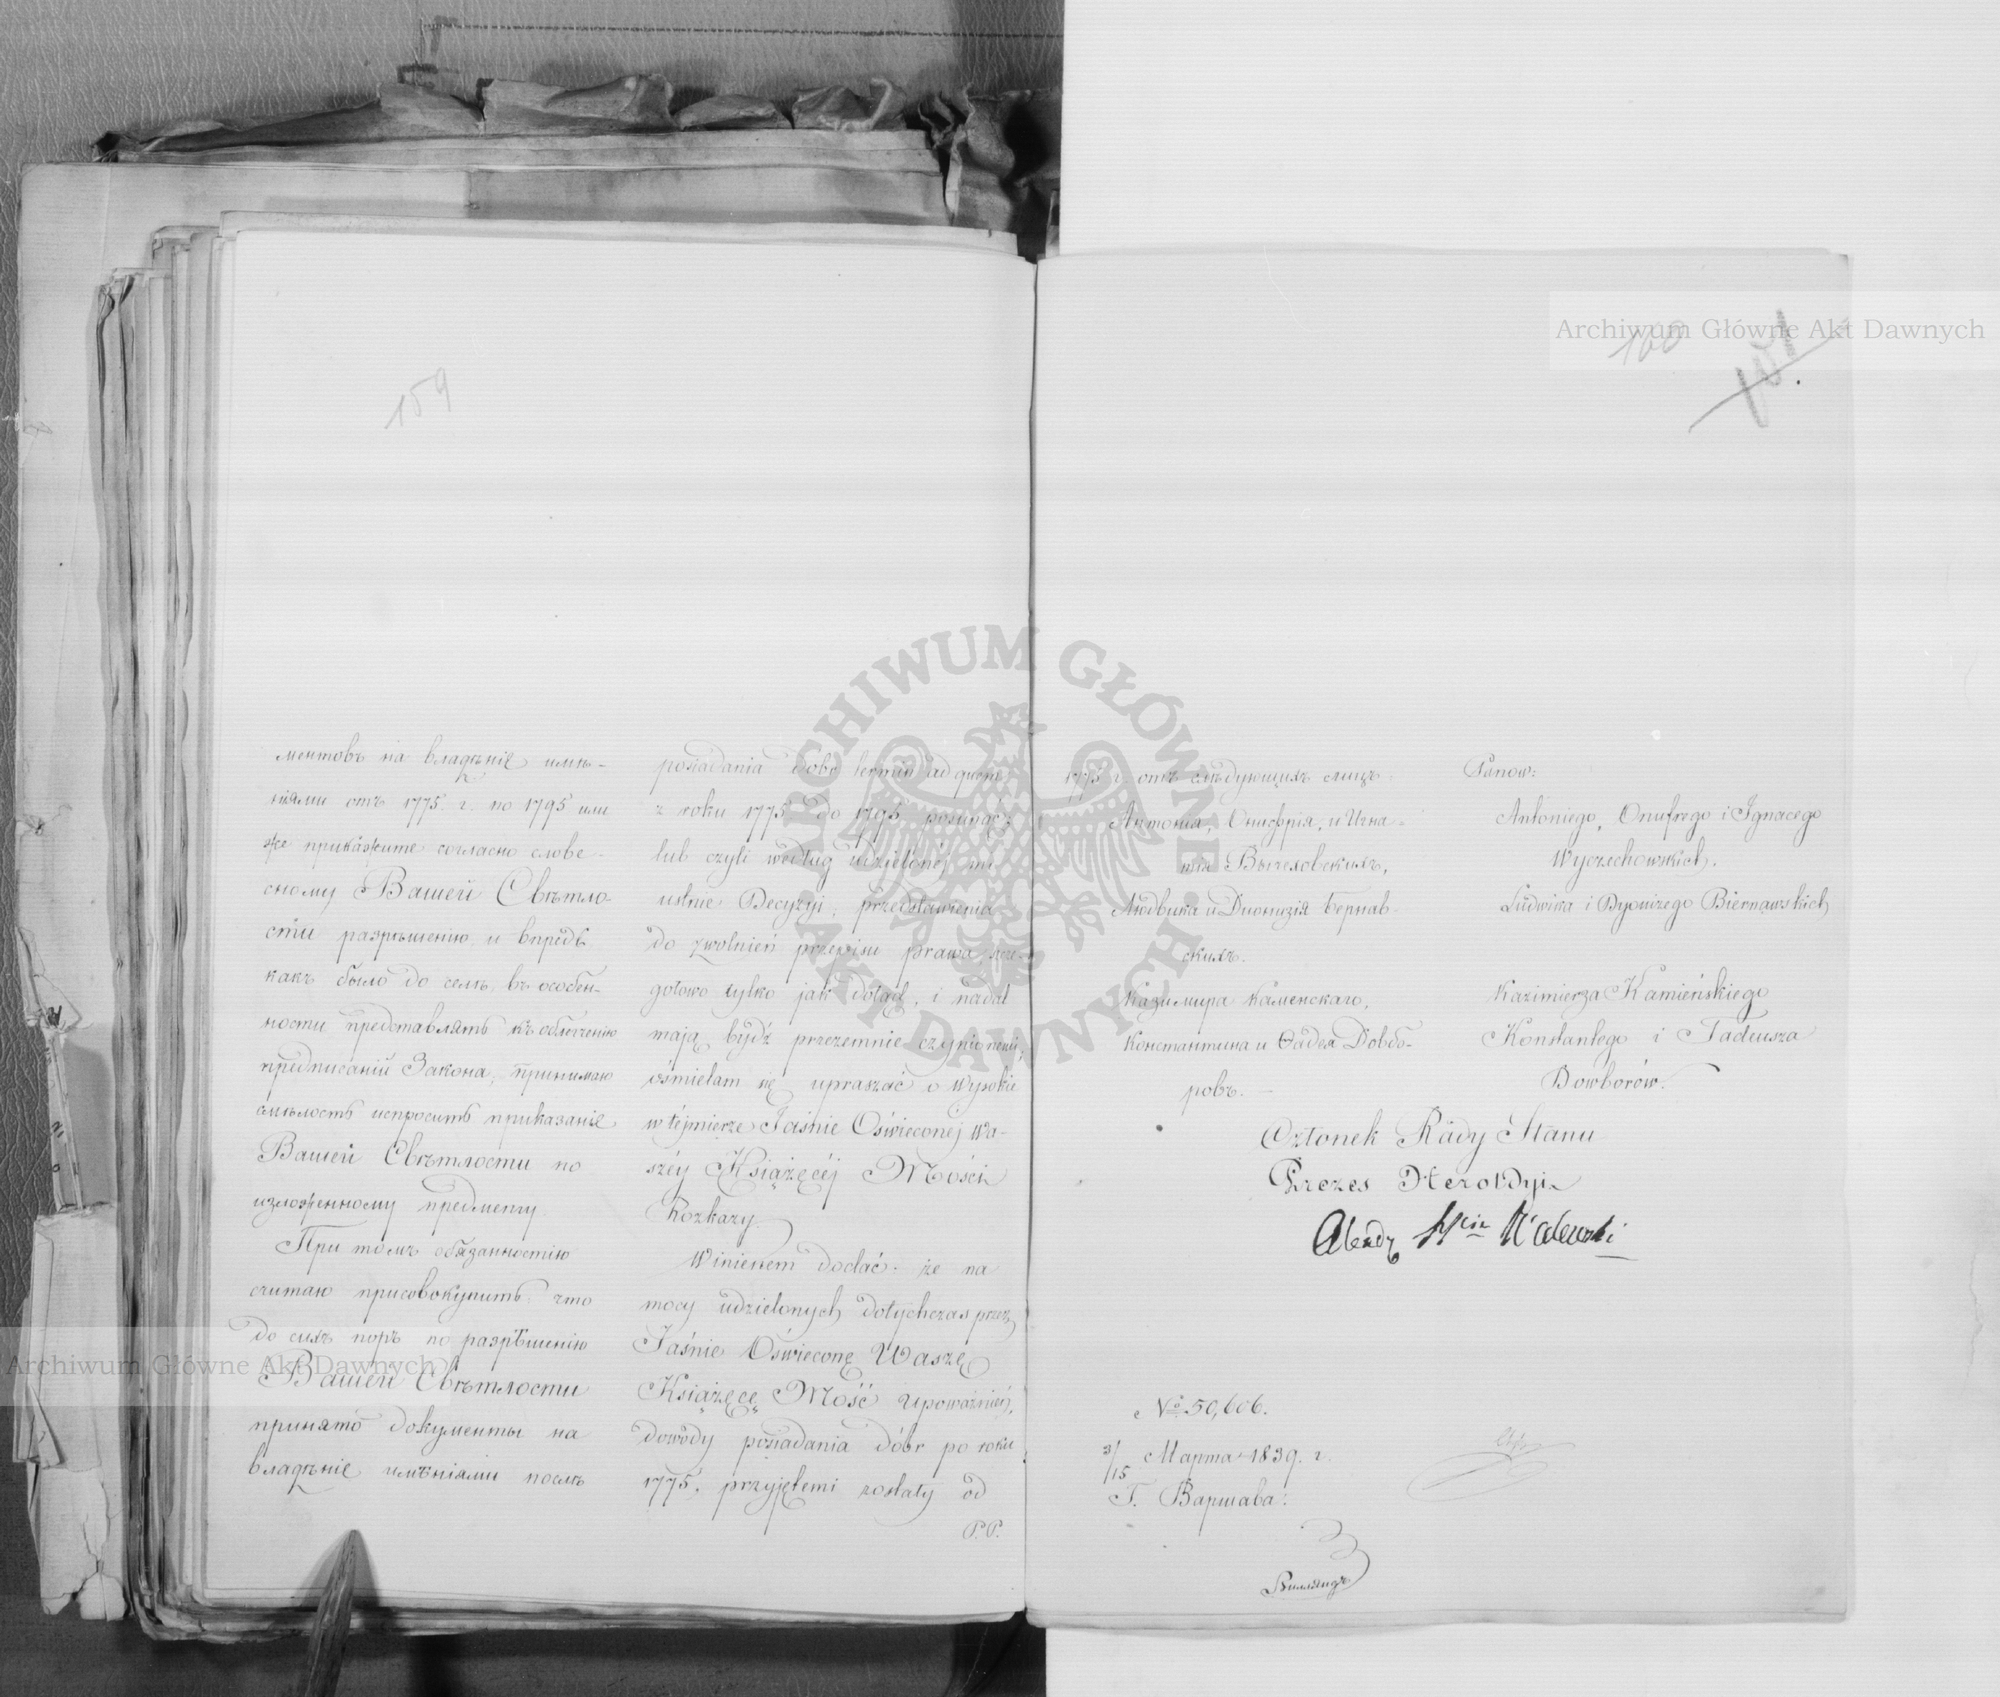 159
ментовъ на владѣніе имѣ-
ніями отъ 1775. г. по 1795 или
же прикажите согласно слове-
сному Вашей Свѣтло-
сти разрѣшенію и впредь
какъ было до селѣ, въ особен-
ности представлять къ облегченію
предписаній Закона, принимаю
смѣлость испросить приказаніе
Вашей Свѣтлости по
изложенному предмету.
При томъ обязанностію
считаю присовокупить: что
до сихъ поръ по разрѣшенію
Вашей Свѣтлости
принято документы на
владѣніе имѣніями послѣ
posiadania dobr termin ad quem
z roku 1775 do 1795 posunąć;
lub czyli według udzielonéj mi
ustnie Decyzyi, przedstawienia
do zwolnień przepisu prawa,
gołowo tylko jak dotąd, i nadal
mają bydź przezemnie czynionemi,
ośmielam się upraszać o Wysokie
w téjmierze Jaśnie Oświeconéj Wa-
széy Książęcéj Mości
Rozkazy.
Winienem dodać: że na
mocy udzielonych dotychczas przez
Jaśnie Oświeconę Waszę
Książęcę Mość upoważnień,
dowody posiadania dóbr po roku
1775, przyjętemi zostały od
P.P.
160
161
1775 г. отъ слѣдующихъ лицъ:
Антонія, Онуфрія, и Игна-
тія Вычеховскихъ,
Людвика и Діонизія Бернав-
скихъ.
Казимира Каменскаго,
Константина и Ѳадея Довбо-
ровъ.
Panow:
Antoniego, Onufrego i Ignacego
Wyczechowskich.
Ludwika i Dyonizego Biernawskich
Kazimierza Kamieńskiego
Konstantego i Tadeusza
Dowborów.
Członek Rady Stanu
Prezes Heroldyi
№ 50,606.
3/15 Марта 1839. г.
Г. Варшава.
Archiwum Główne Akt Dawnych
Archiwum Główne Akt Dawnych
ARCHIWUM GŁÓWNE AKT DAWNYCH